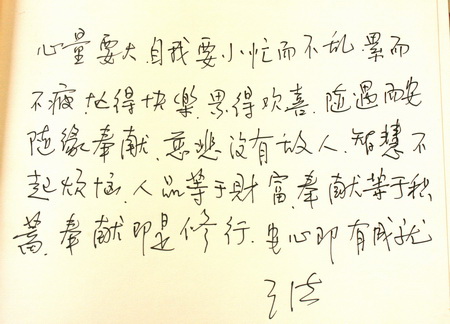 心量要大.自我要小忙而不乱.累而
不疲.忙得快樂.累得欢喜.随遇而安
随缘奉献.慈悲没有敌人.智慧不
起烦恼.人品等于財富.奉献等于积
蓄.奉献即是修行.安心即有成就